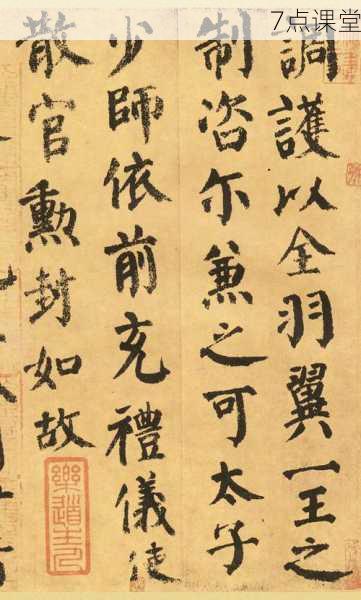 7点课堂
調護以全羽翼一王之
制咨尓兼之可太子
少師依前充禮儀使
散官勲封如故
樂道主人